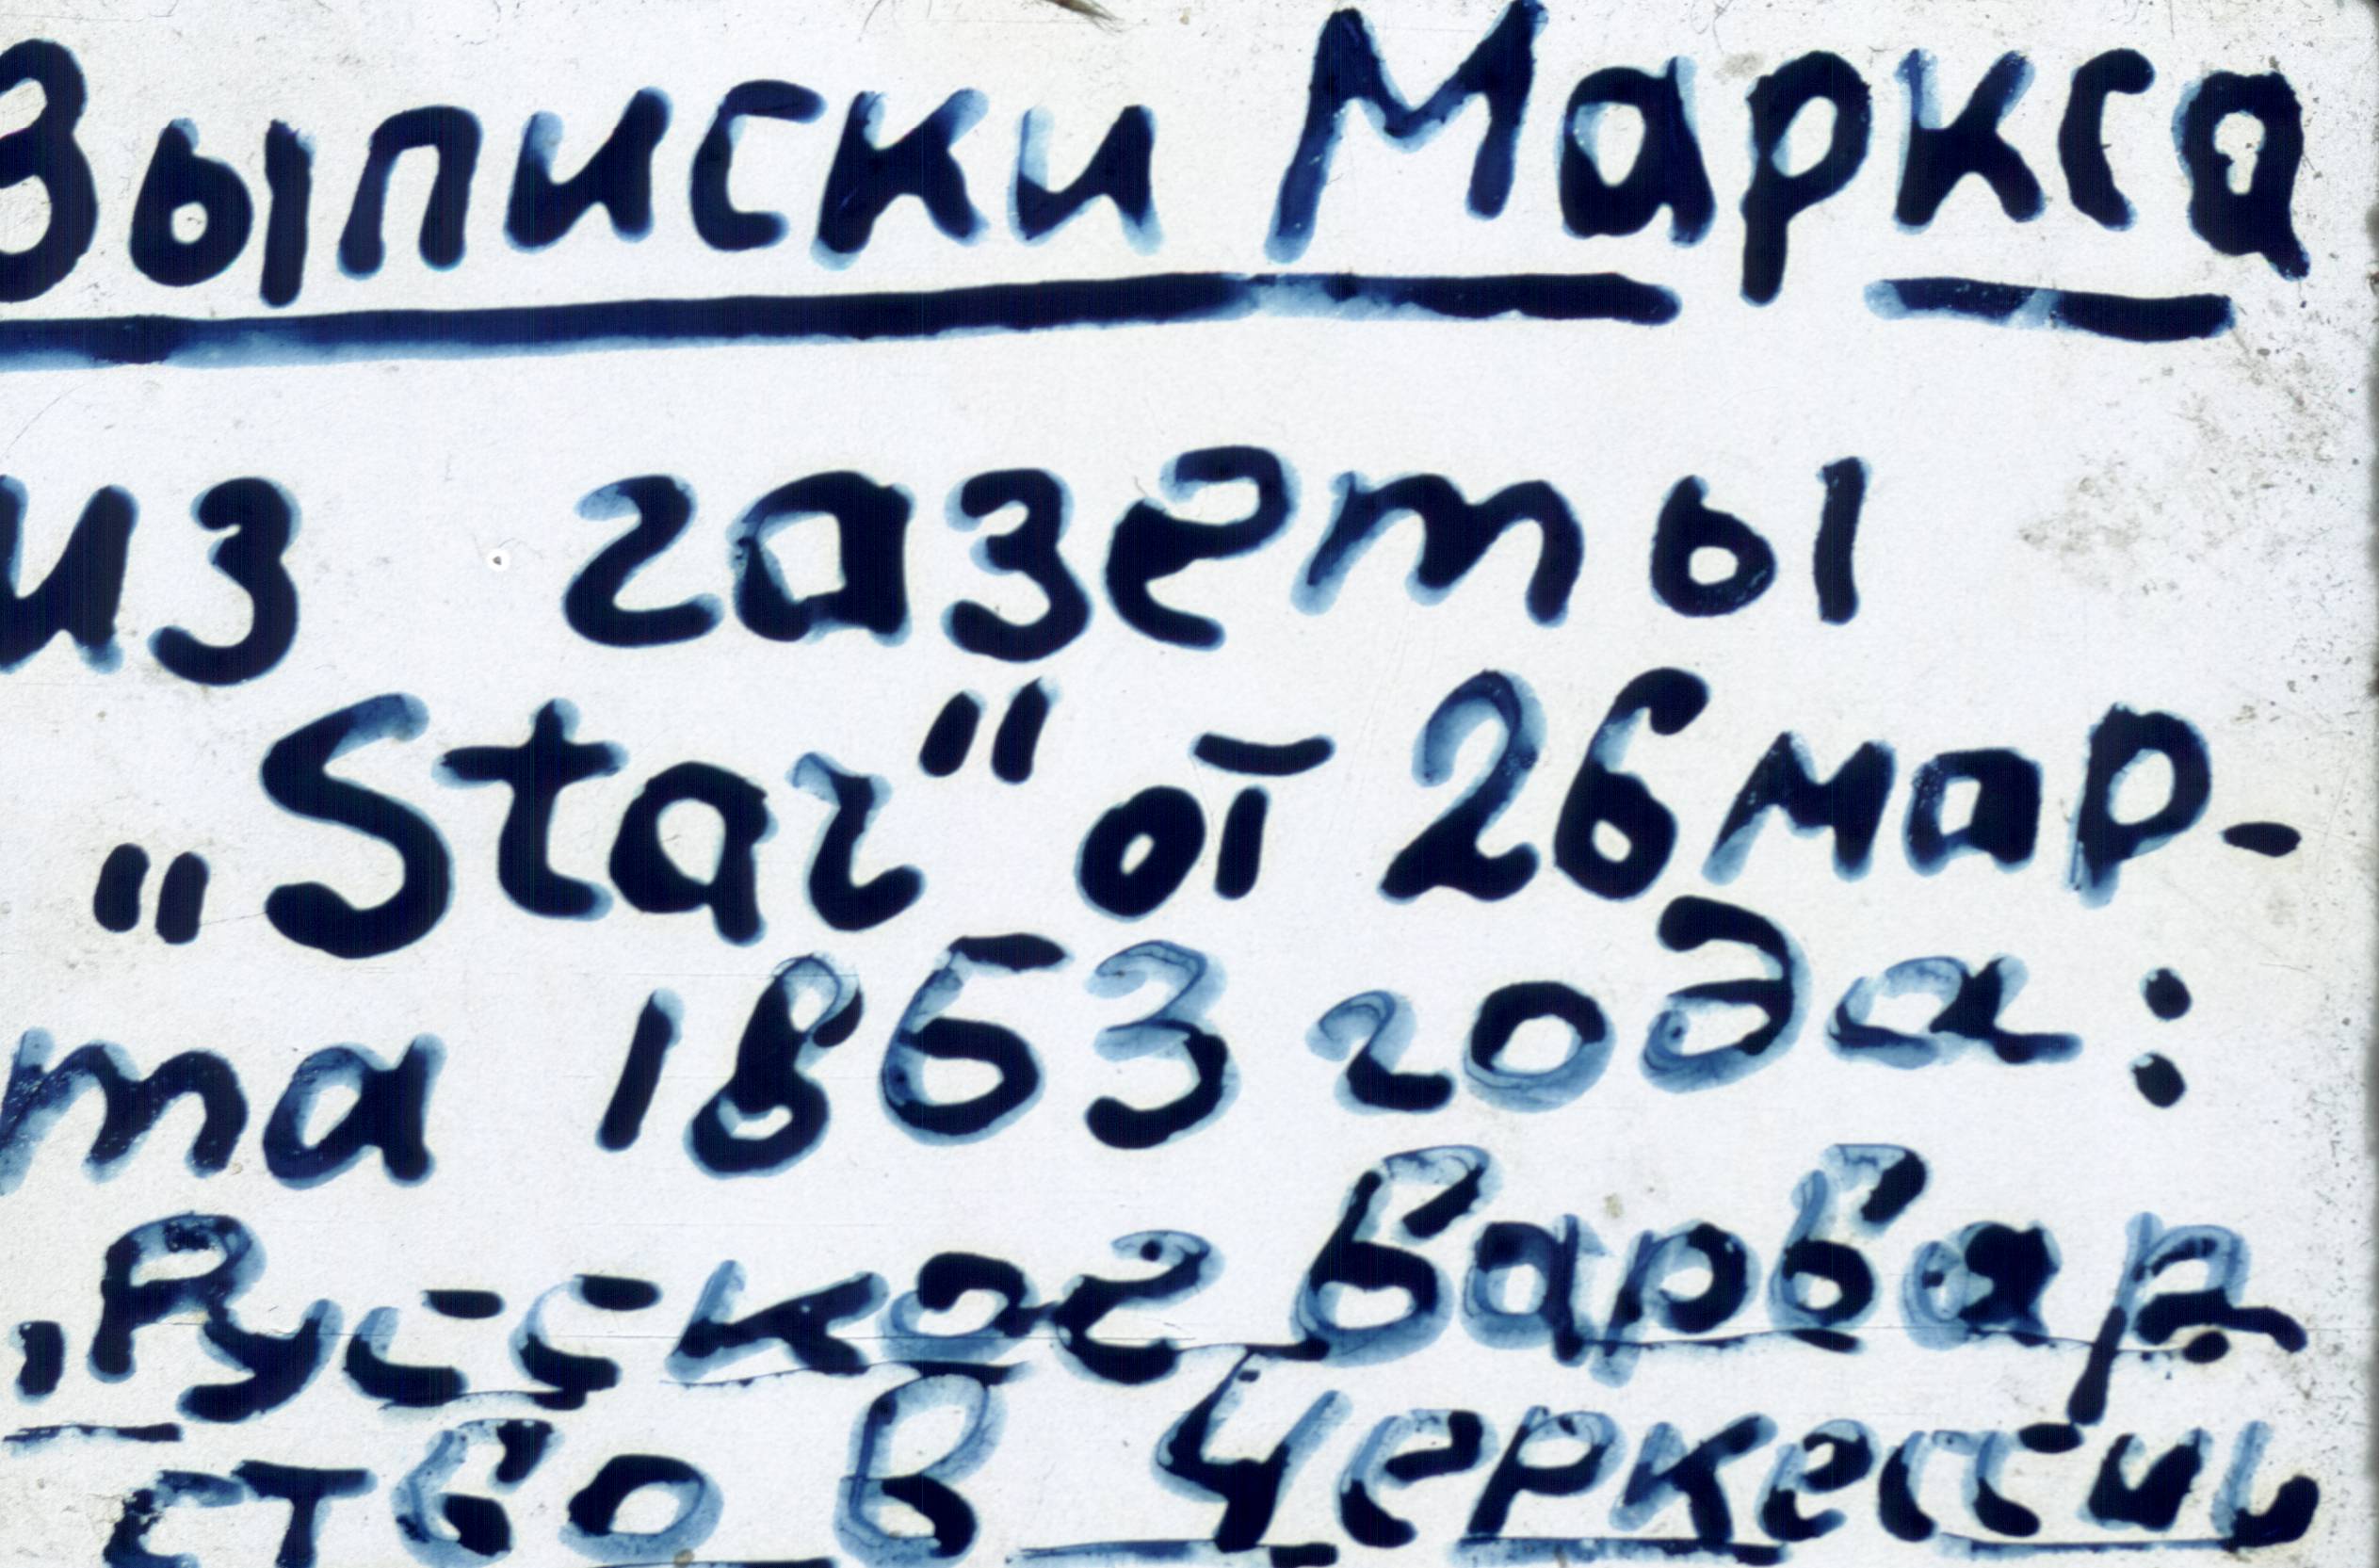 Выписки Маркса
из газеты
„Star“ от 26 мар-
та 1863 года:
„Русское варвар
ство в Черкессии